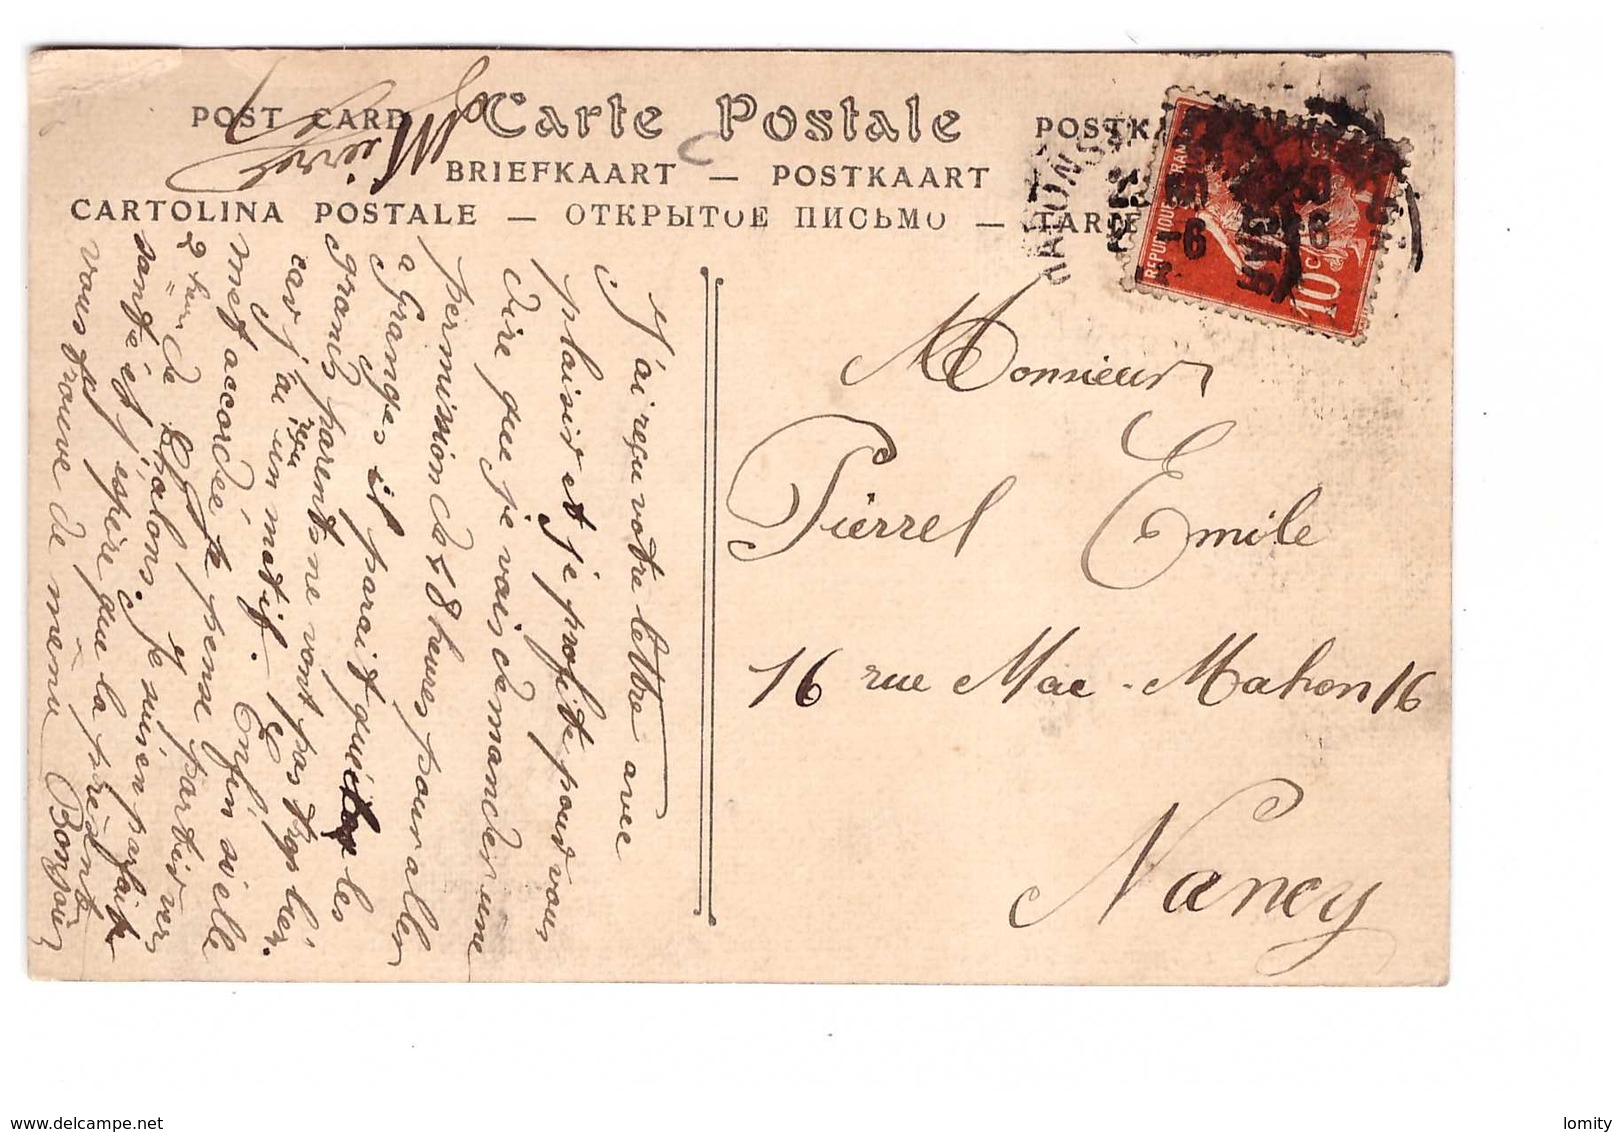 POST CARD Carte Postale POSTKA
BRIEFKAART — POSTKAART
CARTOLINA POSTALE — ОТКРЫТОЕ ПИСЬМО — TARJE
J'ai reçu votre lettre avec
plaisir et je profite pour vous
dire que je vais demander une
permission de 48 heures pour aller
a Granges il parait que les
grands parents ne vont pas trop bien.
car j'ai reçu un motif. Enfin si elle
m'est accordée je pense partir vers
2 heures de Châlons. Je suis en parfaite
santé et j'espère que la présente
vous trouve de même Bonjour
Pierrel
REPUBLIQUE FRAN
10 c
CHALONS S
-6
Monsieur
Pierrel Emile
16 rue Mac-Mahon 16
Nancy
www.delcampe.net
lomity